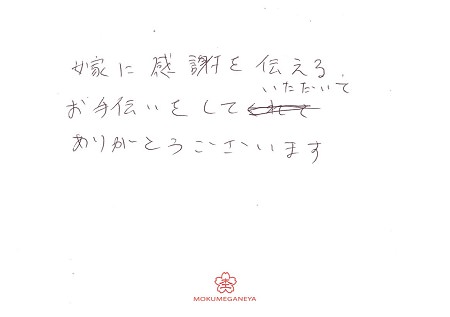 嫁に感謝を伝える
いただいて
お手伝いをして
ありがとうございます
MOKUMEGANEYA